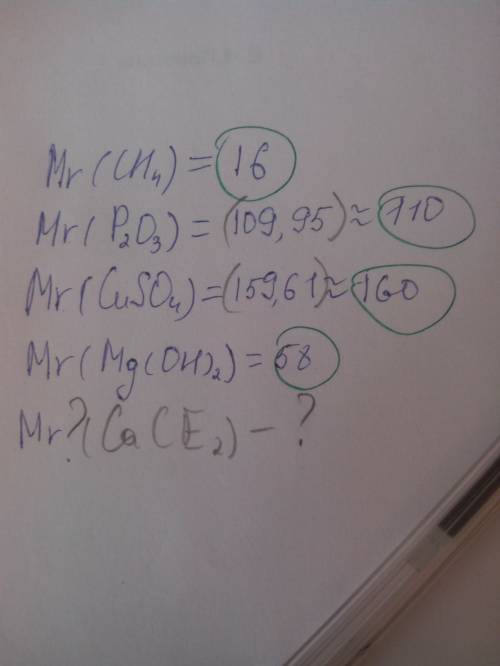 Mr(CH4) = 16
Mr(P2O3) = (109,95) ≈ 110
Mr(CuSO4) = (159,61) ≈ 160
Mr(Mg(OH)2) = 58
Mr?(Ca(E2) - ?